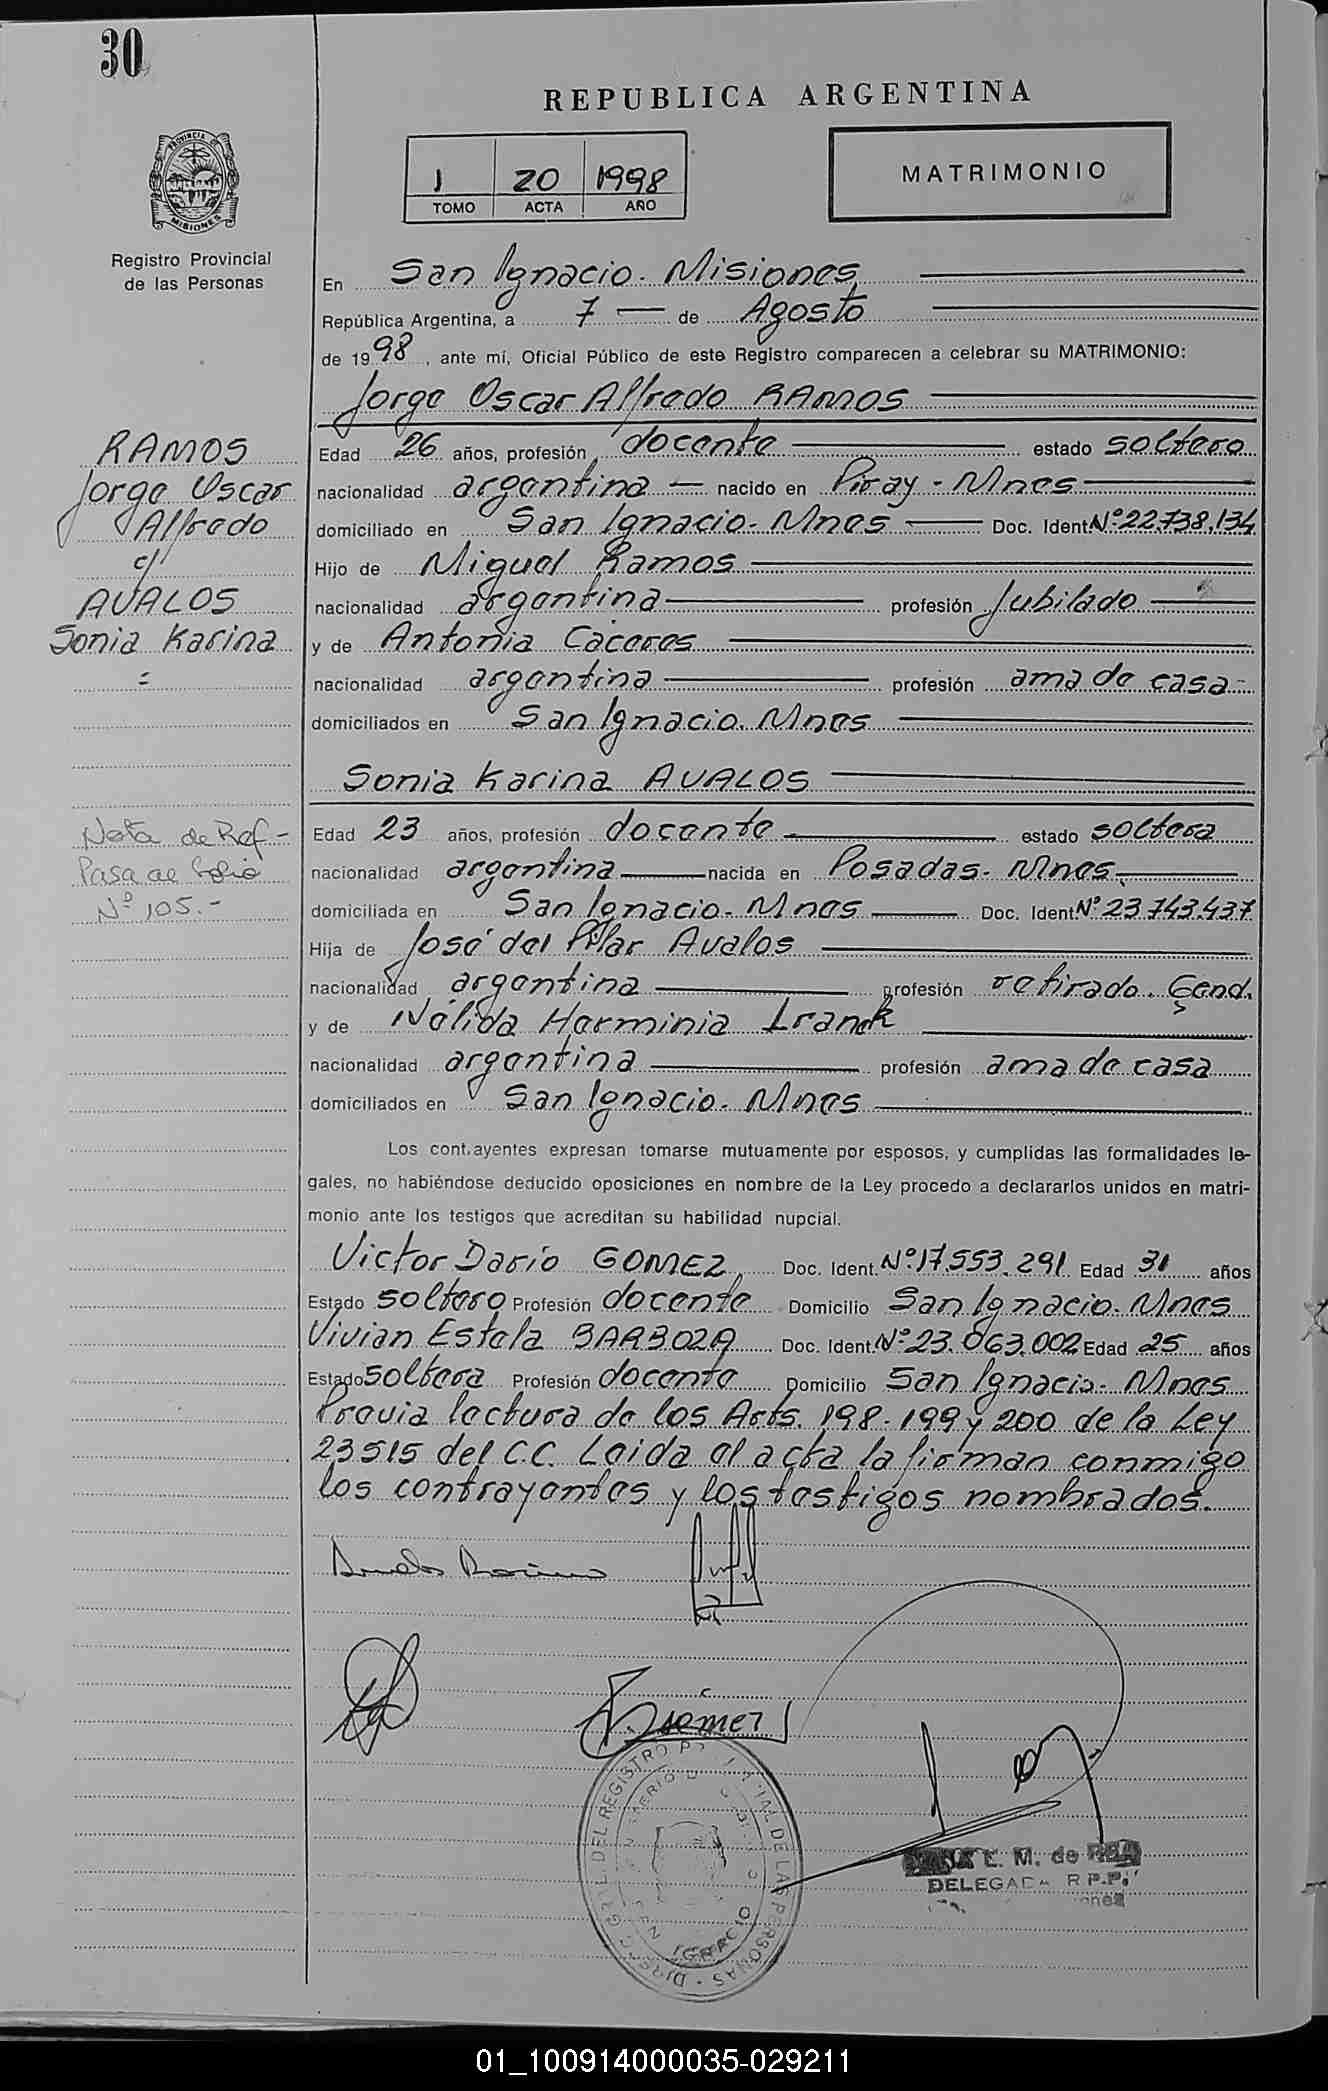 30
REPUBLICA ARGENTINA
1 20 1998
TOMO ACTA AÑO
MATRIMONIO
PROVINCIA DE MISIONES
Registro Provincial
de las Personas
En San Ignacio. Misiones
República Argentina, a 7 de Agosto
de 1998, ante mí, Oficial Público de este Registro comparecen a celebrar su MATRIMONIO:
Jorge Oscar Alfredo RAMOS
RAMOS
Jorge Oscar
Alfredo
c/
AVALOS
Sonia Karina
=
Edad 26 años, profesión docente estado soltero
nacionalidad argentina nacido en Piray - Mnes
domiciliado en San Ignacio. Mnes Doc. Ident. Nº 22.738.134
Hijo de Miguel Ramos
nacionalidad argentina profesión Jubilado
y de Antonia Cáceres
nacionalidad argentina profesión ama de casa-
domiciliados en San Ignacio. Mnes
Sonia Karina AVALOS
Nota de Ref-
Pasa al Folio
Nº 105.-
Edad 23 años, profesión docente estado soltera
nacionalidad argentina nacida en Posadas. Mnes.
domiciliada en San Ignacio. Mnes Doc. Ident. Nº 23.743.437
Hija de José del Pilar Avalos
nacionalidad argentina profesión retirado. Gend.
y de Nélida Herminia
nacionalidad argentina profesión ama de casa
domiciliados en San Ignacio. Mnes
Los contrayentes expresan tomarse mutuamente por esposos, y cumplidas las formalidades le-
gales, no habiéndose deducido oposiciones en nombre de la Ley procedo a declararlos unidos en matri-
monio ante los testigos que acreditan su habilidad nupcial.
Victor Darío GOMEZ, Doc. Ident. Nº 17.553.291 Edad 31 años
Estado soltero Profesión docente Domicilio San Ignacio. Mnes
Vivian Estela BARBOZA Doc. Ident. Nº 23.063.002 Edad 25 años
Estado soltera Profesión docente Domicilio San Ignacio. Mnes
Previa lectura de los Arts. 198-199 y 200 de la Ley
23515 del C.C. Leida el acta la firman conmigo
los contrayentes y los testigos nombrados.
L. M. de
DELEGADA R.P.P.
DEL REGISTRO DE LAS PERSONAS
IGNACIO
01_100914000035-029211